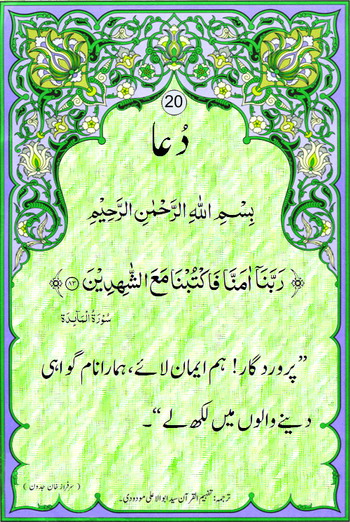 20
دُعا
بِسْمِ اللهِ الرَّحْمٰنِ الرَّحِيْمِ
﴿ رَبَّنَآ اٰمَنَّا فَاكْتُبْنَا مَعَ الشّٰهِدِيْنَ ۝۸۳ ﴾
سُوْرَةُ الْمَآىِٕدَة
”پروردگار! ہم ایمان لائے، ہمارا نام گواہی
دینے والوں میں لکھ لے“۔
( سرفراز خان جدون )
ترجمہ: تفہیم القرآن سید ابوالاعلیٰ مودودی۔